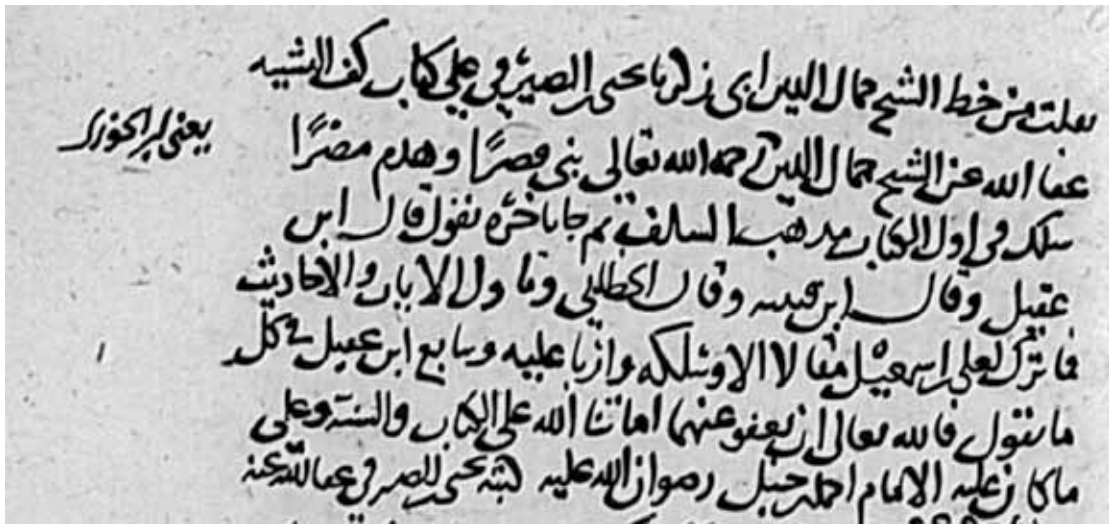 نقلت من خط الشيخ جمال الدين ابى زكريا يحيى الصيرفي على كتاب كف التشبيه
يعنى لابن الجوزى
عفا الله عن الشيخ جمال الدين رحمه الله تعالى بنى قصرًا وهدم مصرًا
سلك في اول الكتاب مذهب السلف ثم جا باخره يقول قال ابن
عقيل وقال ابن قتيبه وقال الخطابي وتاول الايات والاحاديث
فما ترك لعلى اسمعيل مقالا الا وسلكه وازرا عليه وتابع ابن عقيل في كل
ما يقول فالله تعالى ان يعفو عنهما اماتنا الله على الكتاب والسنة وعلى
ما كان عليه الامام احمد بن حنبل رضوان الله عليه كتبه يحيى الصيرفي عفا الله عنه